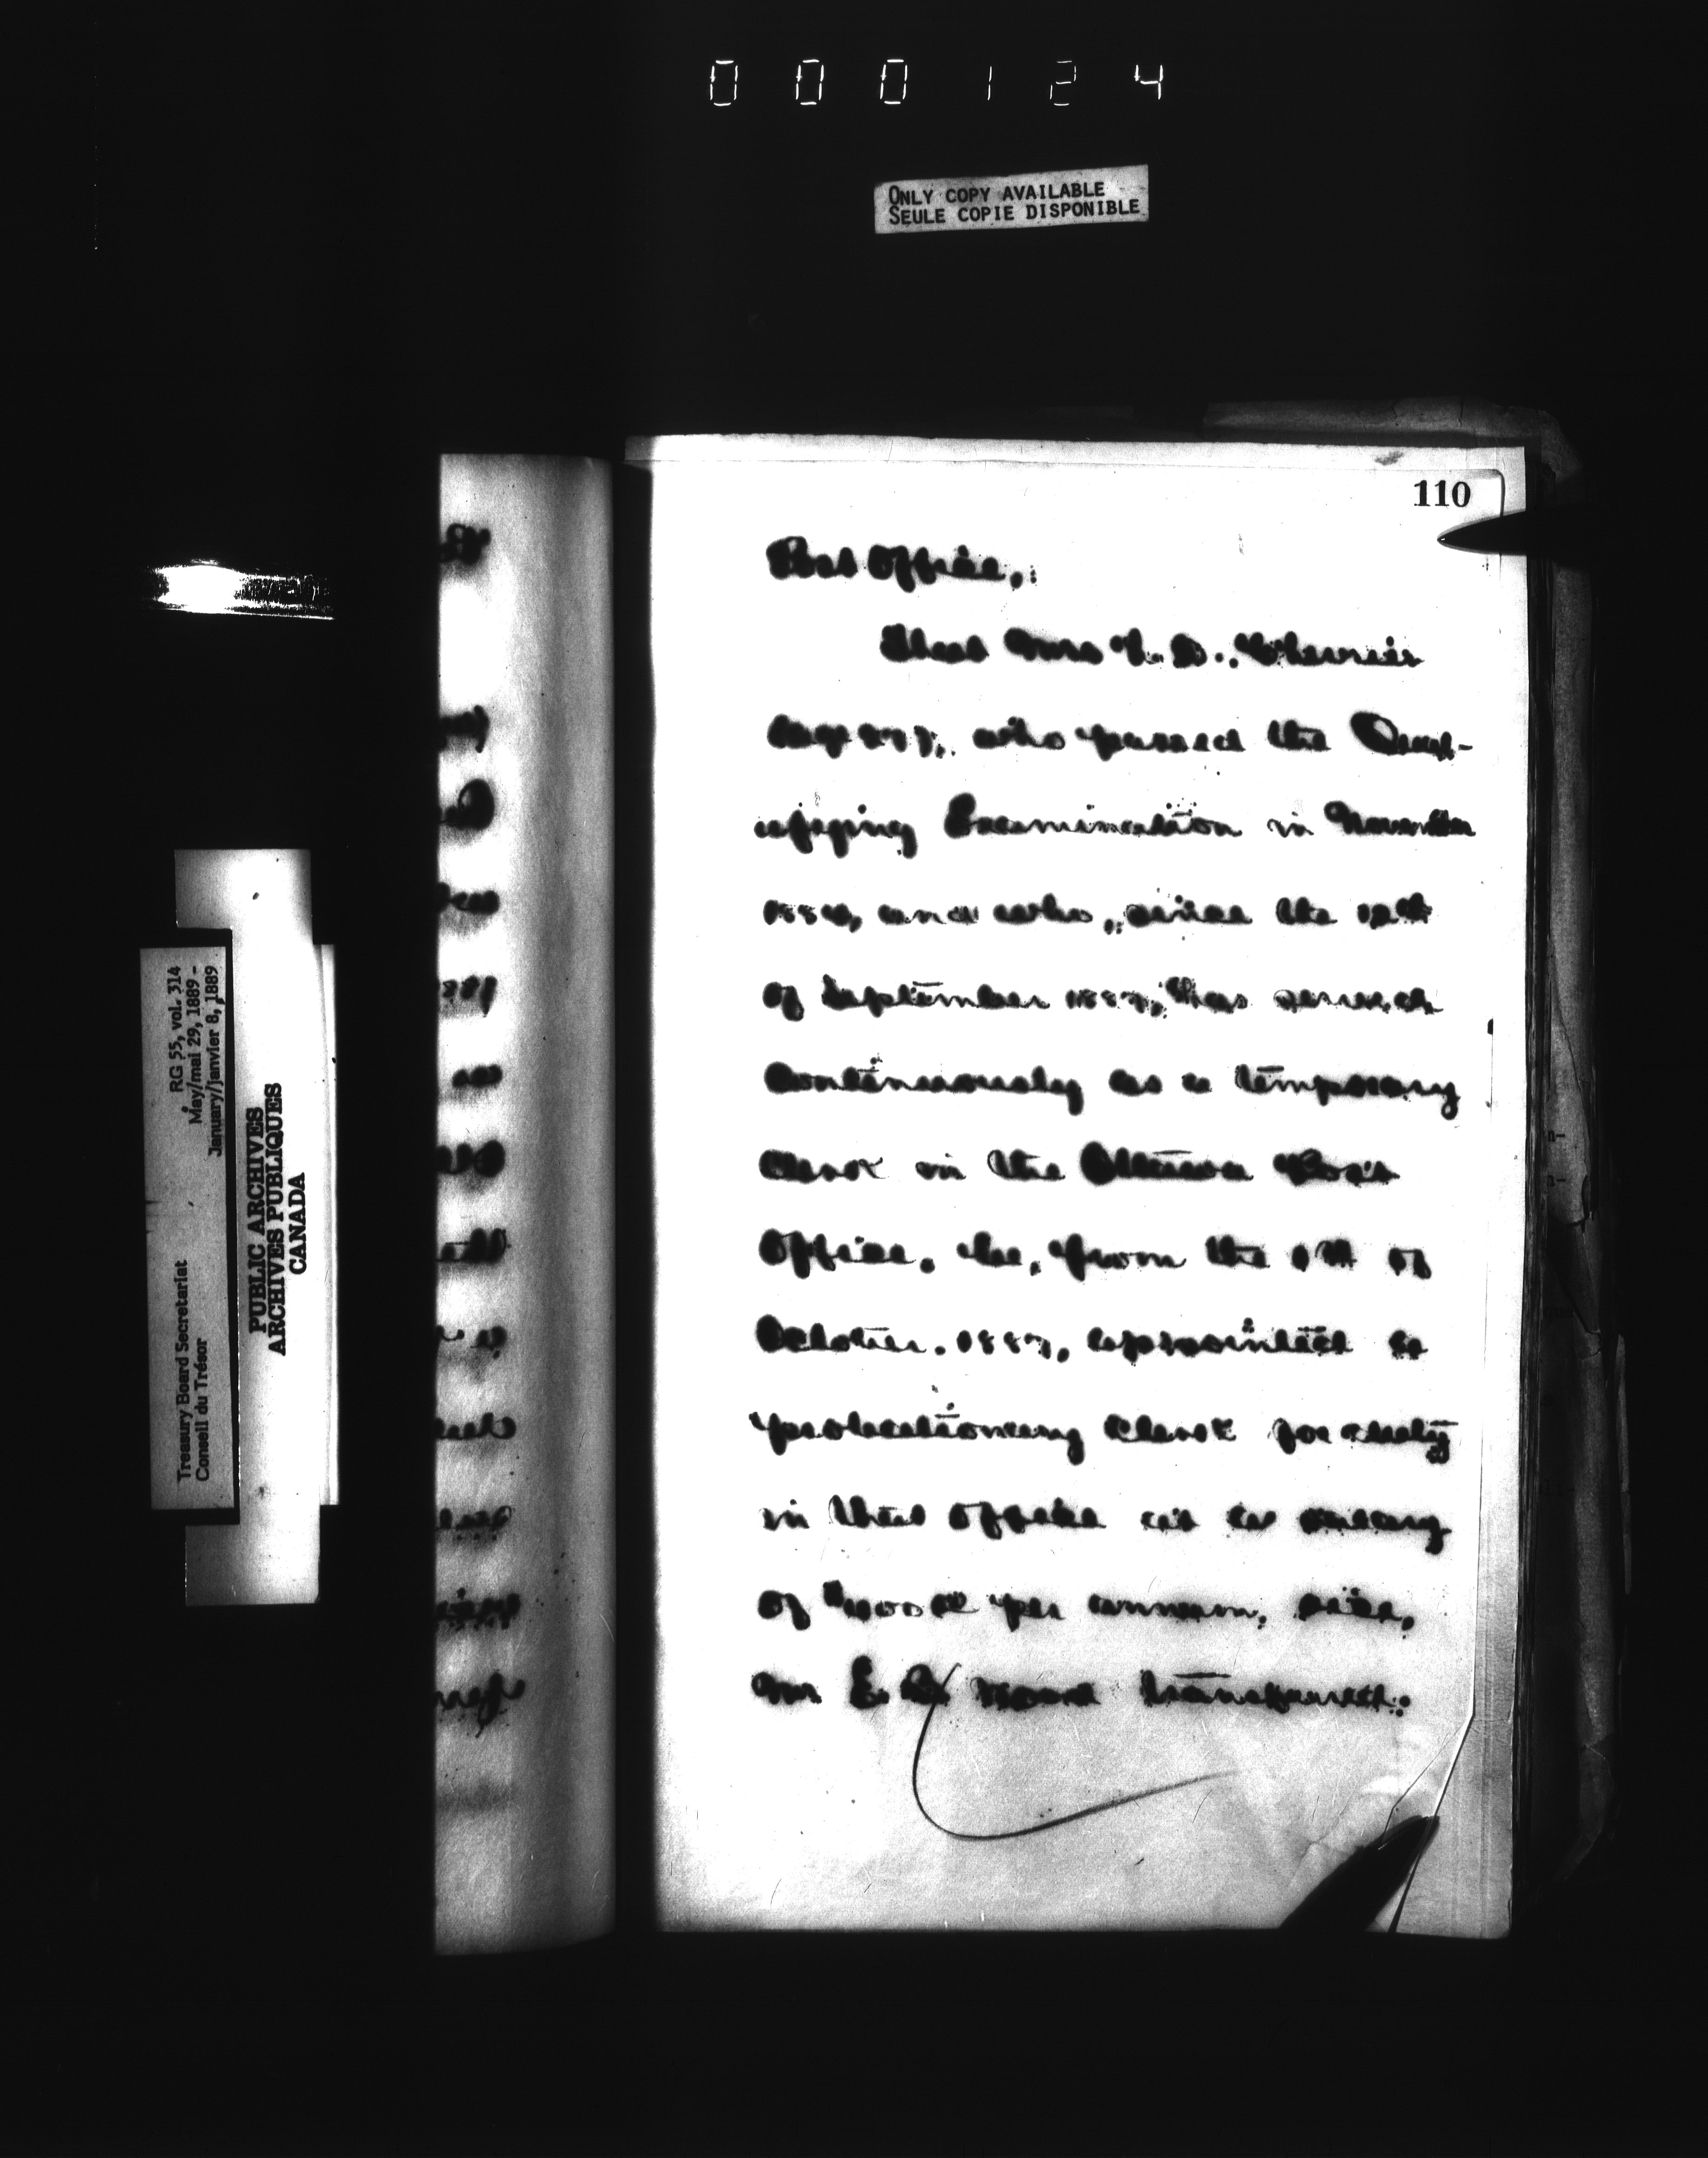 000124
ONLY COPY AVAILABLE
SEULE COPIE DISPONIBLE
110
Post Office,
That Mr. J. D. Chevrier
who passed the Qual-
ifying Examination in November
and who, since the 12th
of September 1887, has served
continuously as a temporary
clerk in the Ottawa Post
Office, be, from the 1st of
October. 1887, appointed a
probationary clerk for duty
in that office at a salary
of $400 00 per annum, vice,
Mr E. transferred.
RG 55, vol. 314
May/mai 29, 1889 -
January/janvier 8, 1889
Treasury Board Secretariat
Conseil du Trésor
PUBLIC ARCHIVES
ARCHIVES PUBLIQUES
CANADA